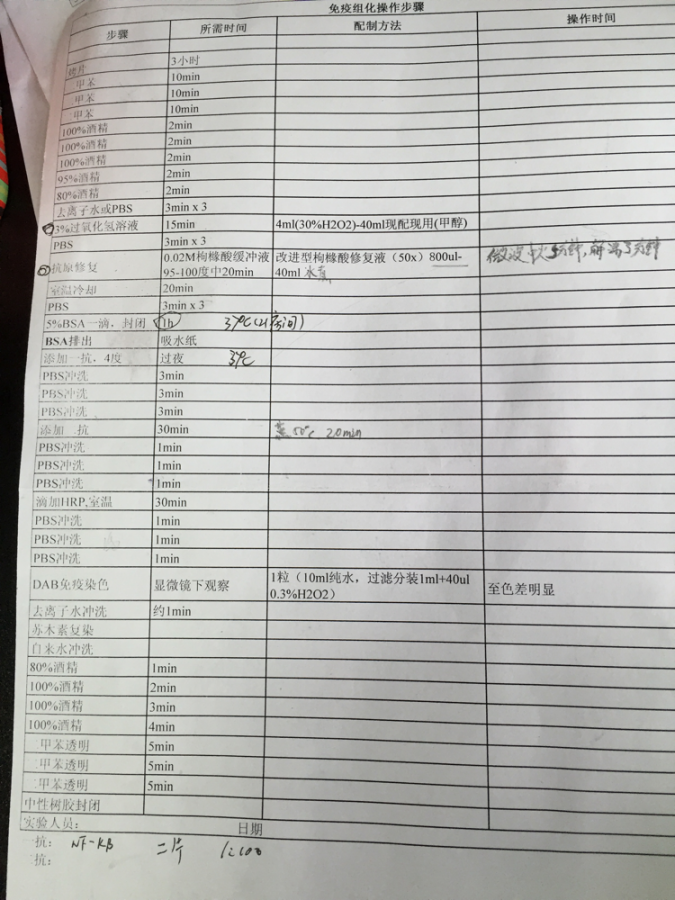 免疫组化操作步骤
步骤 所需时间 配制方法 操作时间
烤片 3小时
二甲苯 10min
二甲苯 10min
二甲苯 10min
100%酒精 2min
100%酒精 2min
100%酒精 2min
95%酒精 2min
80%酒精 2min
去离子水或PBS 3min x 3
3%过氧化氢溶液 15min 4ml(30%H2O2)-40ml现配现用(甲醇)
PBS 3min x 3
抗原修复 0.02M枸橼酸缓冲液 改进型枸橼酸修复液（50x）800ul-
95-100度中20min 40ml 水煮
室温冷却 20min
PBS 3min x 3
5%BSA一滴，封闭 1h 37℃
BSA排出 吸水纸
添加一抗，4度 过夜 37℃
PBS冲洗 3min
PBS冲洗 3min
PBS冲洗 3min
添加 抗 30min 50℃ 20min
PBS冲洗 1min
PBS冲洗 1min
PBS冲洗 1min
滴加HRP,室温 30min
PBS冲洗 1min
PBS冲洗 1min
PBS冲洗 1min
DAB免疫染色 显微镜下观察 1粒（10ml纯水，过滤分装1ml+40ul 至色差明显
0.3%H2O2）
去离子水冲洗 约1min
苏木素复染
自来水冲洗
80%酒精 1min
100%酒精 2min
100%酒精 3min
100%酒精 4min
二甲苯透明 5min
二甲苯透明 5min
二甲苯透明 5min
中性树胶封闭
实验人员： 日期
一抗： NF-KB 二片 1:100
二抗：